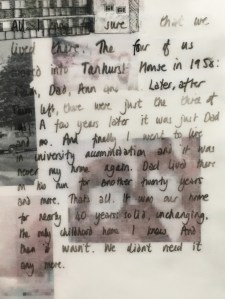 All I know sure that we
lived there. The four of us
into Tankurst House in 1958:
, Dad, Ann . Later, after
left, there were just the three of
us. A few years later it was just Dad
and me. And finally I went to live
in university accommodation and it was
never my home again. Dad lived there
on his own for another twenty years
and more. Thats all. It was our home
for nearly 40 years solid, unchanging.
The only childhood home I knew. And
then it wasn't. We didn't need it
any more.